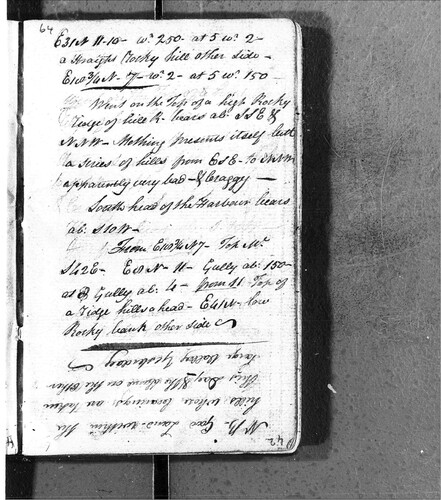 64
E31N 11-10- w. 250- at 5 w. 2-
a Straight Rocky hill other side-
E10 3/4 N- 7- w. 2- at 5 w. 150-
Went on the Top of a high Rocky
Ridge of hill R. bears ab. SSE &
NNW- Nothing presents itself but
a series of hills from ESE- to NNW
apparently very bad- & Craggy-
South head of the Harbour bears
ab. S10W-
From E10 3/4 N 7- Top Mt.
S42E- E8N- 11- Gully ab. 150-
at Gully ab. 4- from 11 Top of
a Ridge hills ahead- E41N- low
Rocky bank other side
N.B. Good Land within the
hills whose bearings are taken
this Day & the same on the other
large Valley Yesterday
42